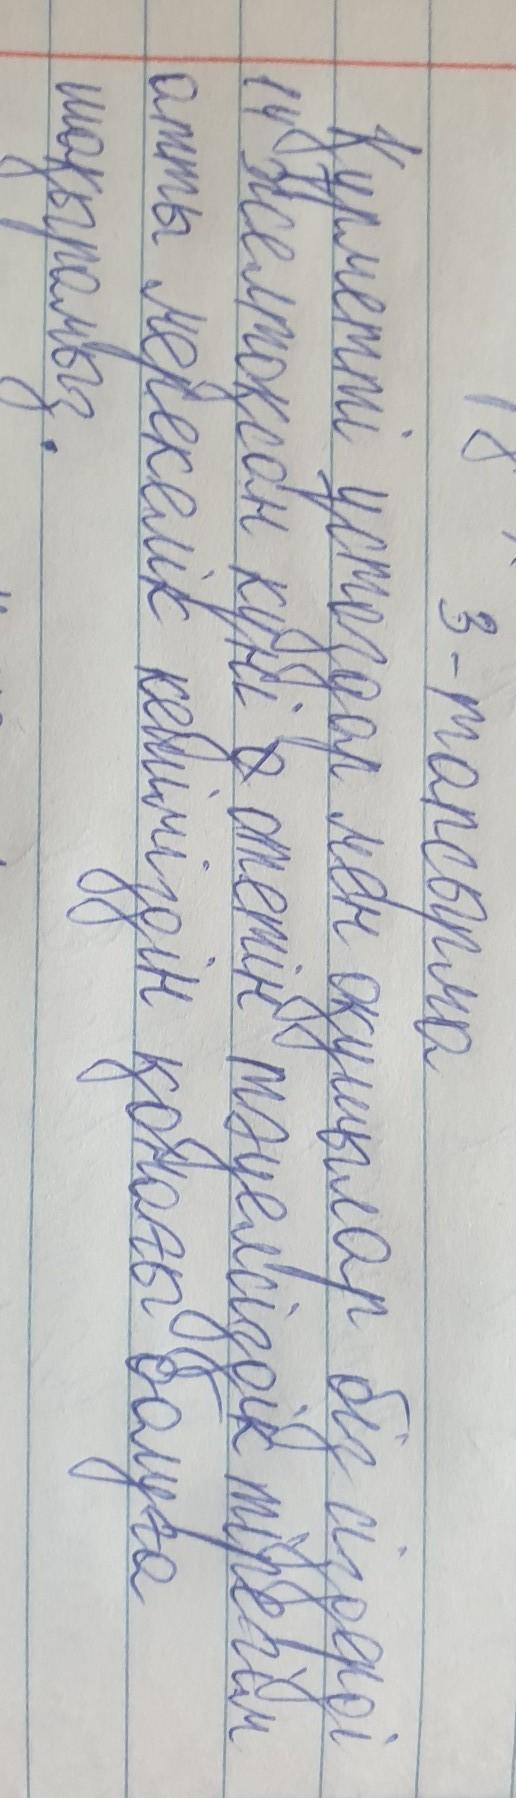 3-тапсырма
Құрметті ұстаздар мен оқушылар біз сіздерді
14 Желтоқсан күні өтетін тәуелсіздік тірегім
атты мерекелік кешіміздің қонағы болуға
шақырамыз.